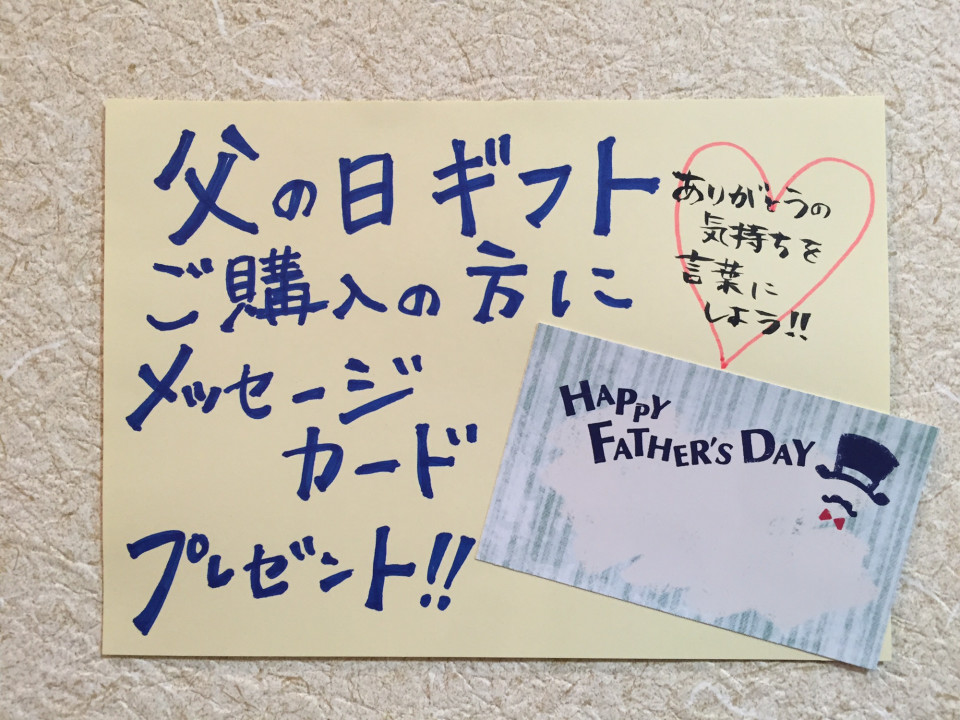 父の日ギフト
ご購入の方に
メッセージ
カード
プレゼント!!
ありがとうの
気持ちを
言葉に
しよう!!
HAPPY
FATHER'S DAY